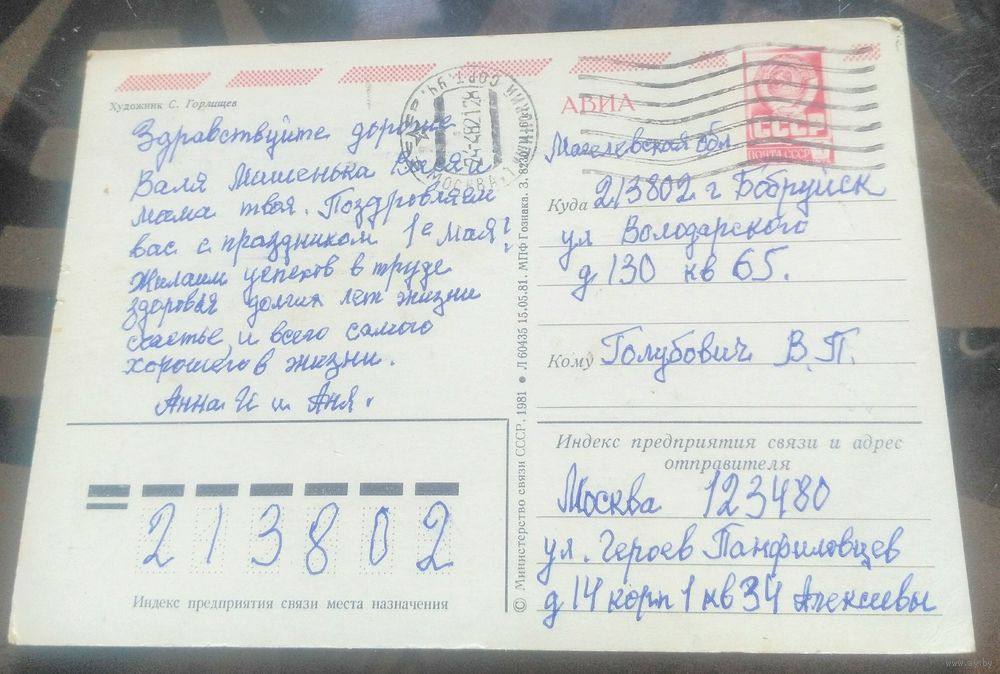 Художник С. Горлищев
Здравствуйте дорогие
Валя Мишенька Валя и
мама твоя. Поздровляем
вас с праздником 1е Мая!
Жилаим успехов в труде
здоровья долгих лет жизни
счастье, и всего самого
хорошего в жизни.
Анна И и Аня.
213802
Индекс предприятия связи места назначения
© Министерство связи СССР, 1981 • Л 60435 15.05.81. МПФ Гознака. З. 8230
МОСКВА
24-4-82 12
АВИА
СССР
ПОЧТА СССР
Магелевская обл
Куда 213802 г Бобруйск
ул Володарского
д 130 кв 65.
Кому Голубович В.П.
Индекс предприятия связи и адрес
отправителя
Москва 123480
ул. Героев Панфиловцев
д 14 корп 1 кв 34 Алексеевы
www.ay.by